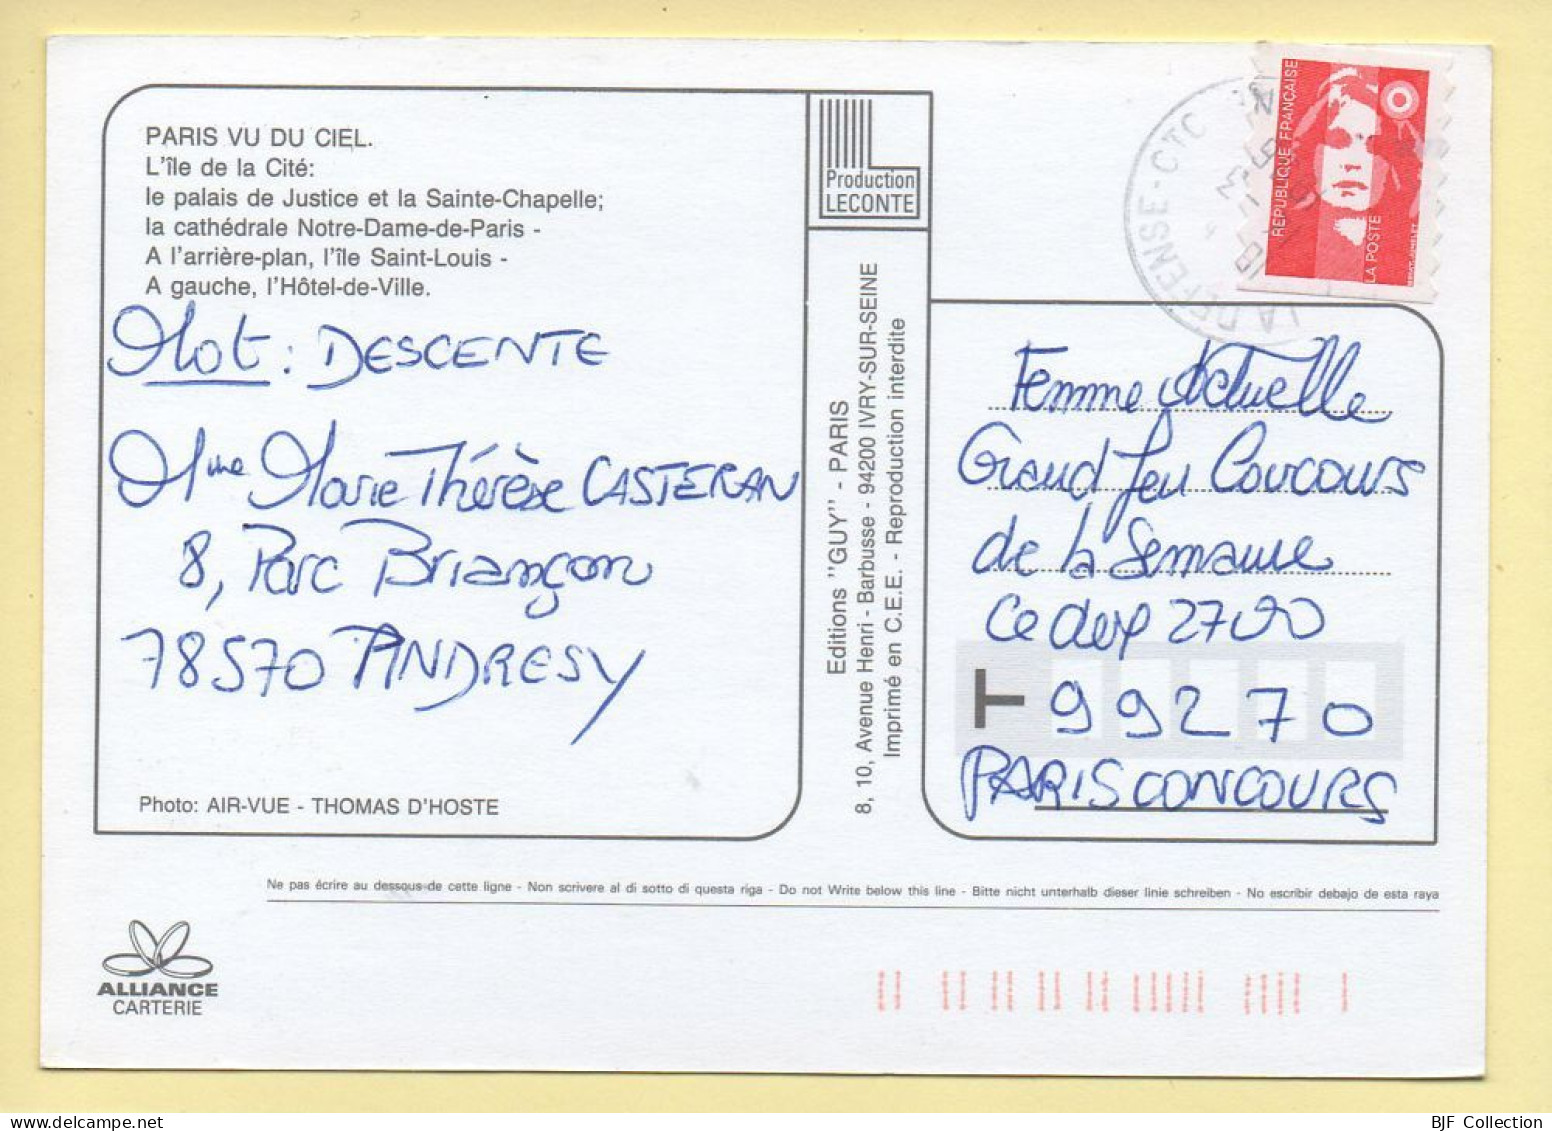 PARIS VU DU CIEL.
L'île de la Cité:
le palais de Justice et la Sainte-Chapelle;
la cathédrale Notre-Dame-de-Paris -
A l'arrière-plan, l'île Saint-Louis -
A gauche, l'Hôtel-de-Ville.
Mot : DESCENTE
Mme Marie Thérèse CASTERAN
8, Parc Briançon
78570 ANDRESY
Photo: AIR-VUE - THOMAS D'HOSTE
Production
LECONTE
Editions "GUY" - PARIS
8, 10, Avenue Henri - Barbusse - 94200 IVRY-SUR-SEINE
Imprimé en C.E.E. - Reproduction interdite
LA DEFENSE - CTC
REPUBLIQUE FRANÇAISE
LA POSTE
Femme Actuelle
Grand Jeu Concours
de la Semaine
Cedex 2700
T 99270
PARIS CONCOURS
Ne pas écrire au dessous de cette ligne - Non scrivere al di sotto di questa riga - Do not Write below this line - Bitte nicht unterhalb dieser linie schreiben - No escribir debajo de esta raya
ALLIANCE
CARTERIE
BJF Collection